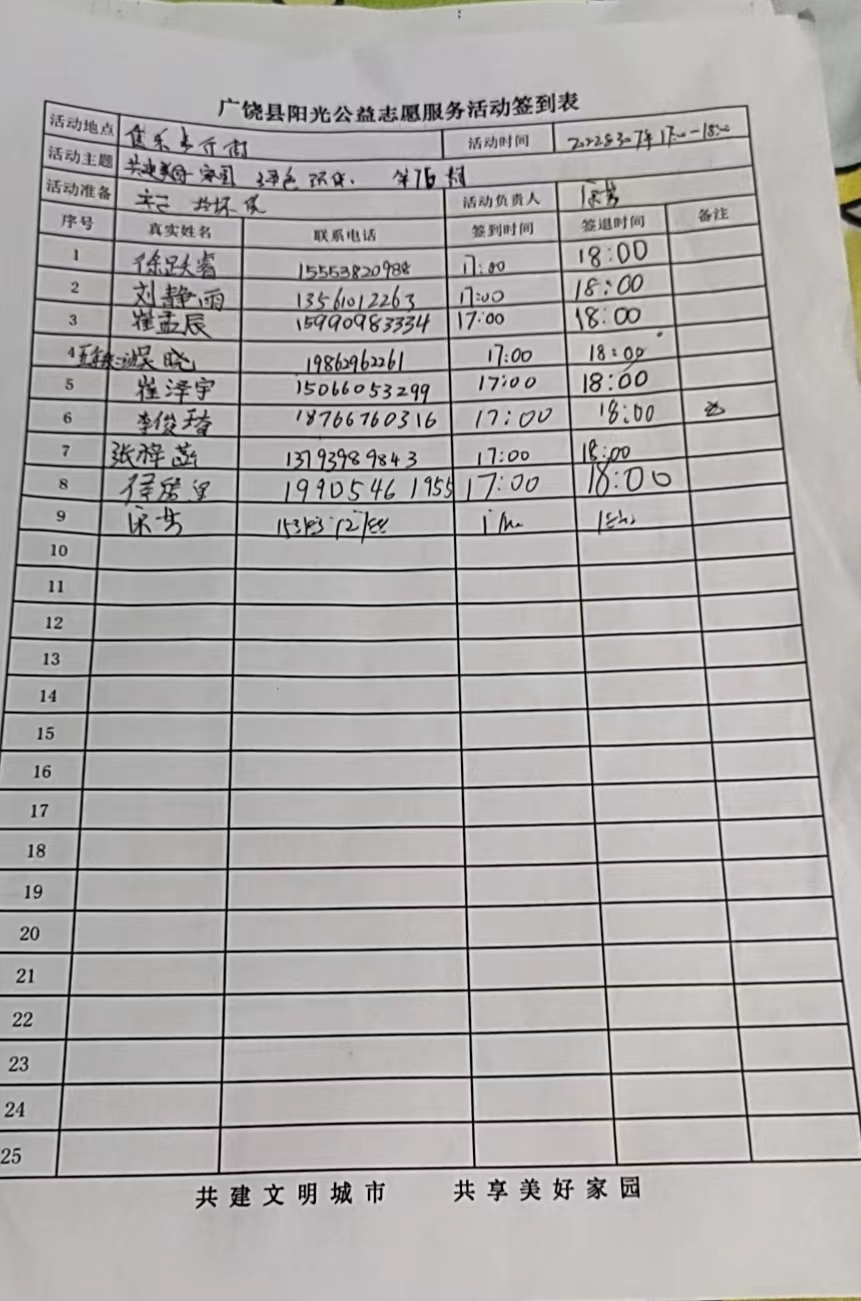 广饶县阳光公益志愿服务活动签到表
活动地点 活动时间 17:00-18:00
活动主题 共建美好家园 绿色环保
活动准备 活动负责人
序号 真实姓名 联系电话 签到时间 签退时间 备注
1 徐跃睿 15553820988 17:00 18:00
2 刘静雨 13561012263 17:00 18:00
3 崔孟辰 15990983334 17:00 18:00
4 吴晓 19862962261 17:00 18:00
5 崔泽宇 15066053299 17:00 18:00
6 李俊 18766760316 17:00 18:00
7 张 13793989843 17:00 18:00
8 19905461955 17:00 18:00
9
10
11
12
13
14
15
16
17
18
19
20
21
22
23
24
25
共建文明城市 共享美好家园